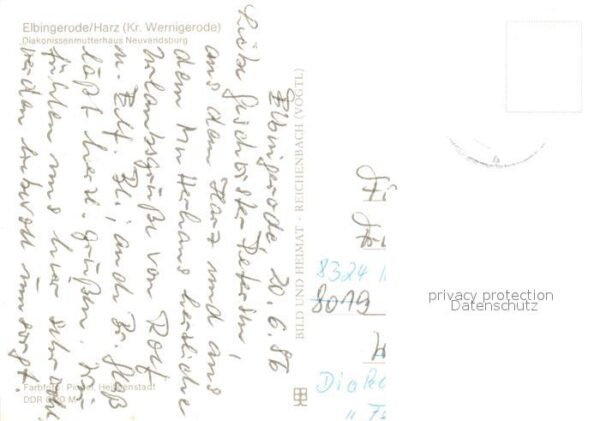 Elbingerode/Harz (Kr. Wernigerode)
Diakonissenmutterhaus Neuvandsburg
Elbingerode, 20.6.86
Liebe Geschwister Petersen,
aus dem Harz und aus
dem Mutterhaus herzliche
Urlaubsgrüße von Rolf
u. Elf. Bu; auch Br. Heß
läßt herzl. grüßen. Wir
fühlen uns hier sehr wohl
werden liebevoll umsorgt.
Farbfoto: Heiligenstadt
DDR M
BILD UND HEIMAT · REICHENBACH (VOGTL)
8324
8019
privacy protection
Datenschutz